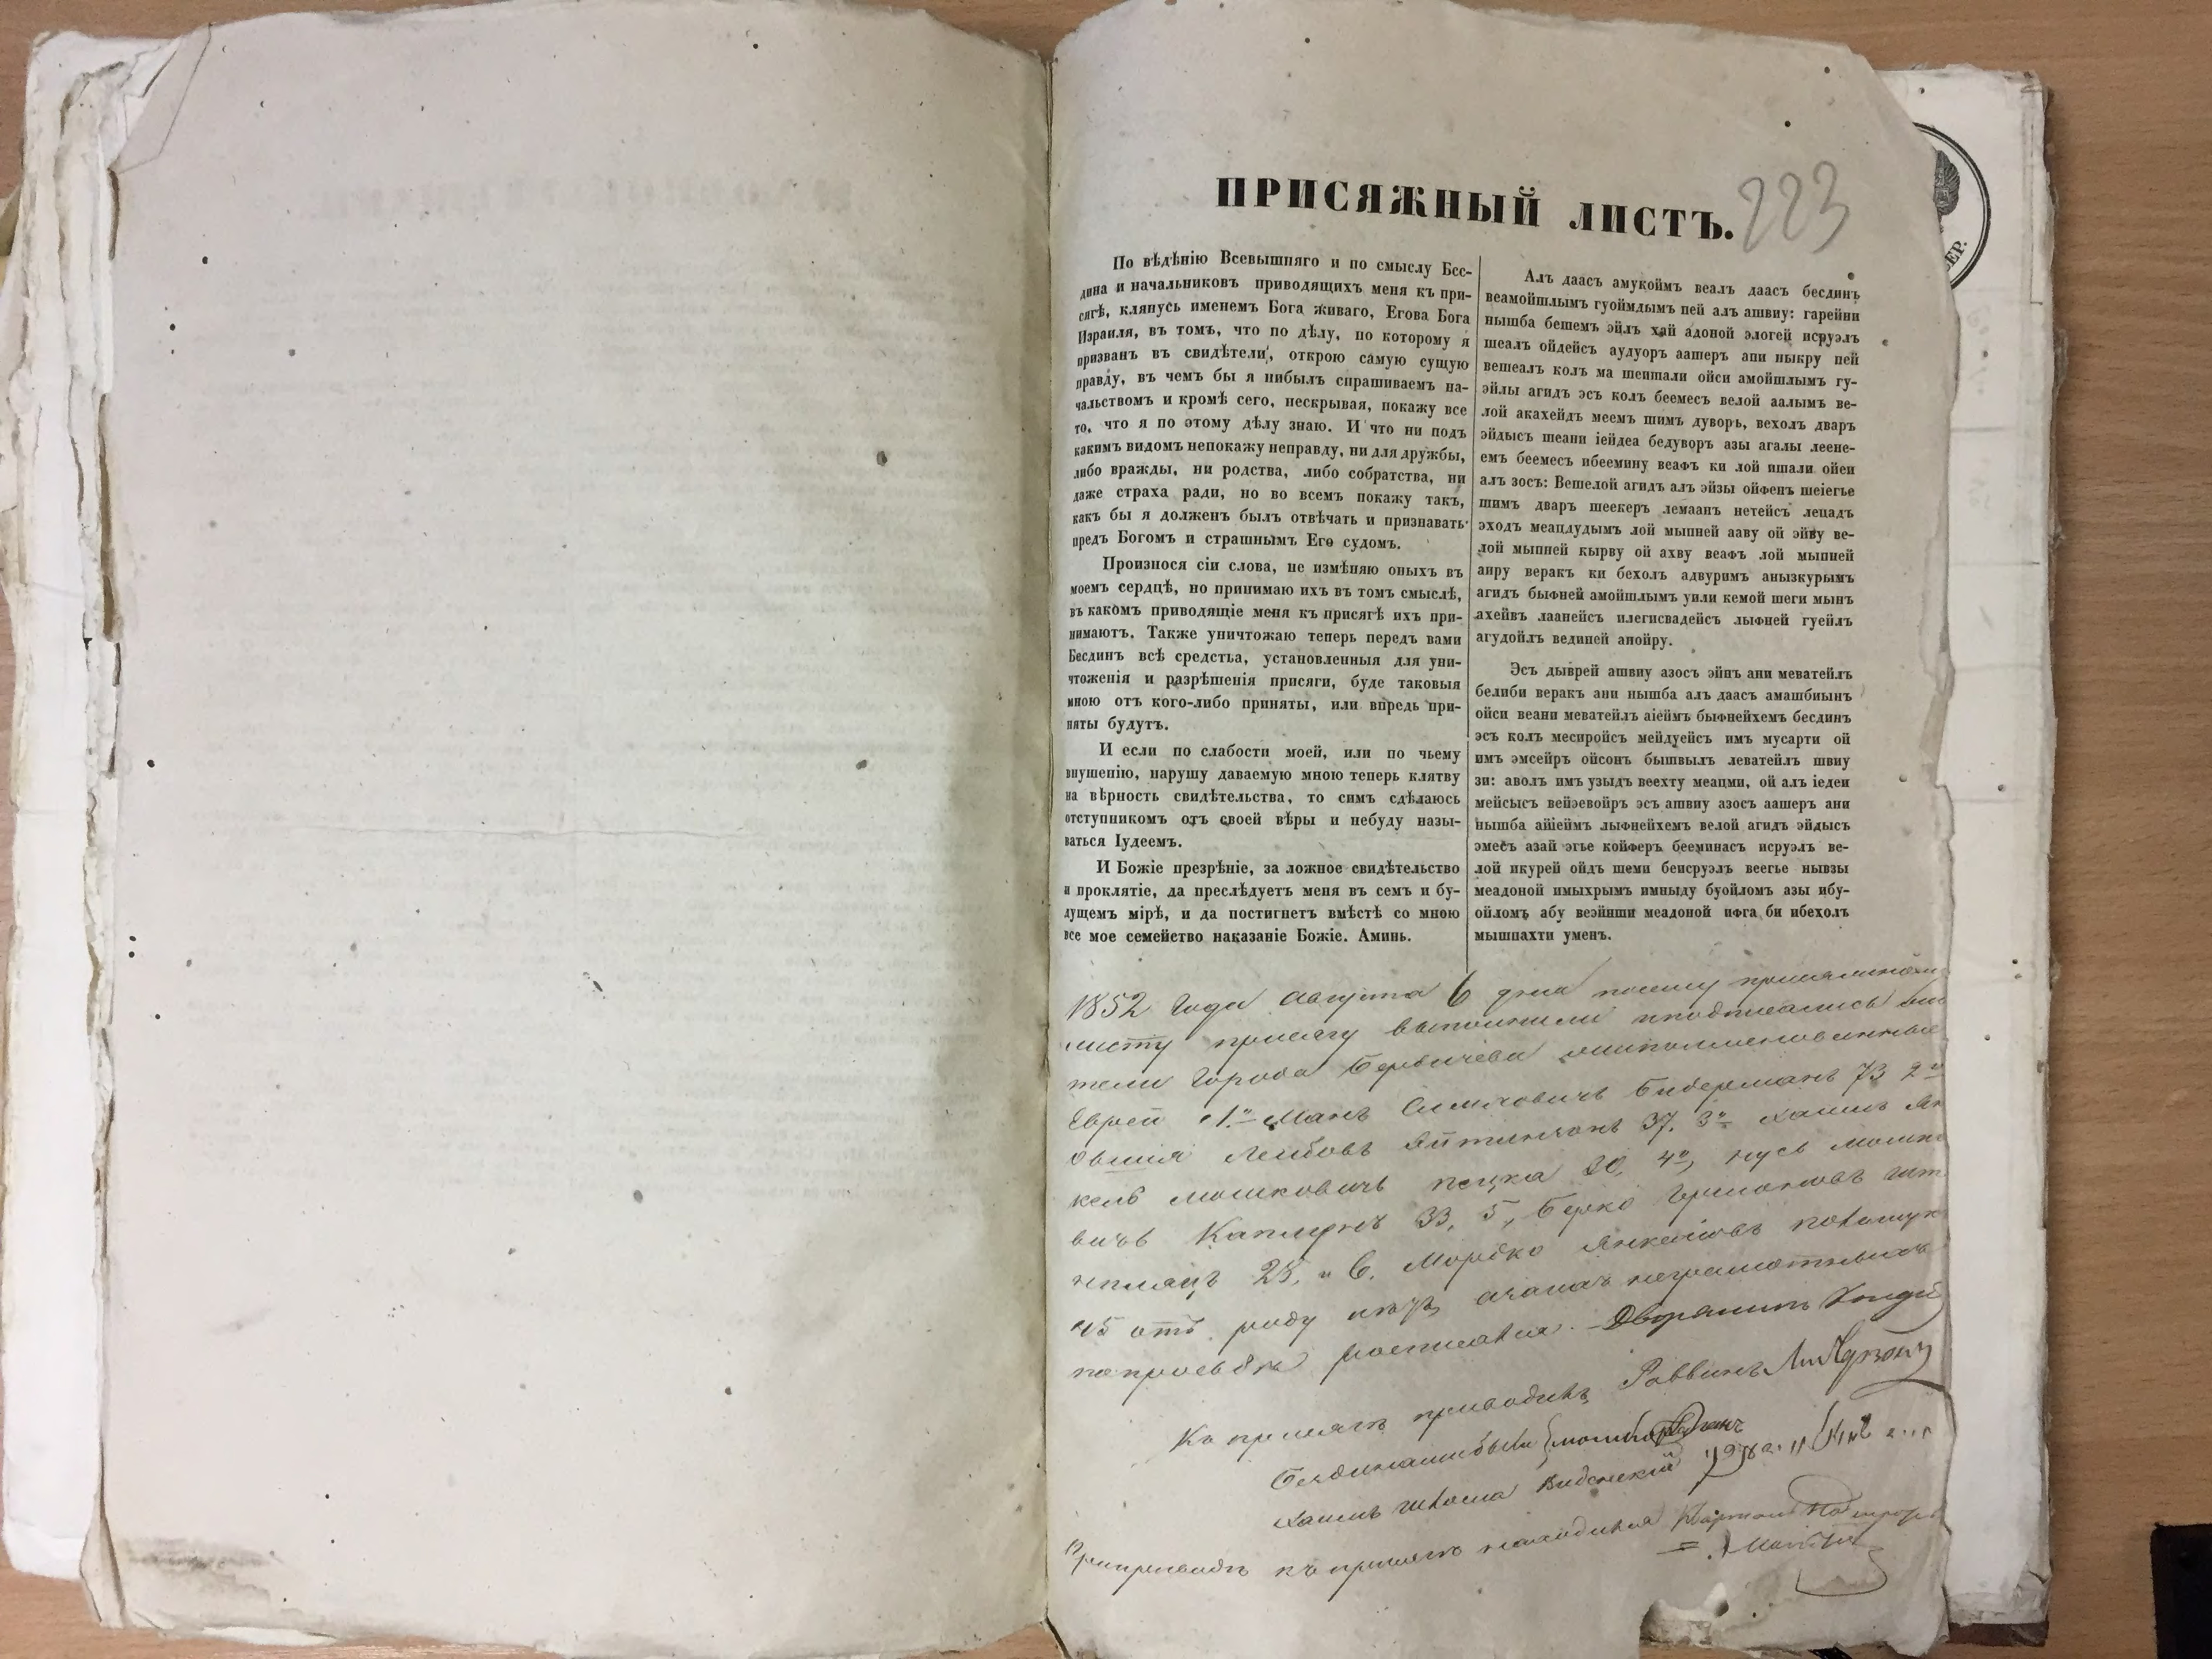 ПРИСЯЖНЫЙ ЛИСТЪ.
223
По вѣдѣнію Всевышняго и по смыслу Бес-
дина и начальниковъ приводящихъ меня къ при-
сягѣ, клянусь именемъ Бога живаго, Егова Бога
Израиля, въ томъ, что по дѣлу, по которому я
призванъ въ свидѣтели, открою самую сущую
правду, въ чемъ бы я нибылъ спрашиваемъ на-
чальствомъ и кромѣ сего, нескрывая, покажу все
то, что я по этому дѣлу знаю. И что ни подъ
какимъ видомъ непокажу неправду, ни для дружбы,
либо вражды, ни родства, либо собратства, ни
даже страха ради, но во всемъ покажу такъ,
какъ бы я долженъ былъ отвѣчать и признавать
предъ Богомъ и страшнымъ Его судомъ.
Произнося сіи слова, не измѣняю оныхъ въ
моемъ сердцѣ, но принимаю ихъ въ томъ смыслѣ,
въ какомъ приводящіе меня къ присягѣ ихъ при-
нимаютъ. Также уничтожаю теперь передъ вами
Бесдинъ всѣ средства, установленныя для уни-
чтоженія и разрѣшенія присяги, буде таковыя
мною отъ кого-либо приняты, или впредь при-
няты будутъ.
И если по слабости моей, или по чьему
внушенію, нарушу даваемую мною теперь клятву
на вѣрность свидѣтельства, то симъ сдѣлаюсь
отступникомъ отъ своей вѣры и небуду назы-
ваться Іудеемъ.
И Божіе презрѣніе, за ложное свидѣтельство
и проклятіе, да преслѣдуетъ меня въ семъ и бу-
дущемъ мірѣ, и да постигнетъ вмѣстѣ со мною
все мое семейство наказаніе Божіе. Аминь.
Алъ даасъ амукоймъ веалъ даасъ бесдинъ
веамойшлымъ гуоймдымъ пей алъ ашвиу: гарейни
нышба бешемъ эйлъ хай адоной элогей исруэлъ
шеалъ ойдейсъ аудуоръ аашеръ ани ныкру пей
вешеалъ колъ ма шеишали ойси амойшлымъ гу-
эйлы агидъ эсъ колъ беемесъ велой аалымъ ве-
лой акахейдъ меемъ шимъ дуворъ, вехолъ дваръ
эйдысъ шеани іейдеа бедуворъ азы агалы леене-
емъ беемесъ ибеемину веафъ ки лой ишали ойси
алъ зосъ: Вешелой агидъ алъ эйзы ойфенъ шеіегье
шимъ дваръ шеекеръ лемаанъ нетейсъ лецадъ
эходъ меаццудымъ лой мыпней ааву ой эйву ве-
лой мыпней кырву ой ахву веафъ лой мыпней
аиру веракъ ки бехолъ адвуримъ анызкурымъ
агидъ быфней амойшлымъ уили кемой шеги мынъ
ахейвъ лаанейсъ илегисвадейсъ лыфней гуейлъ
агудойлъ вединей анойру.
Эсъ дыврей ашвиу азосъ эйнъ ани меватейлъ
белиби веракъ ани нышба алъ даасъ амашбиынъ
ойси веани меватейлъ аіеймъ быфнейхемъ бесдинъ
эсъ колъ месиройсъ мейдуейсъ имъ мусарти ой
имъ эмсейръ ойсонъ бышвылъ леватейлъ швиу
зи: аволъ имъ узыдъ веехту меацми, ой алъ іедеи
мейсысъ вейзевойръ эсъ ашвиу азосъ аашеръ ани
нышба айіеймъ лыфнейхемъ велой агидъ эйдысъ
эмесъ азай эгье койферъ бееминасъ исруэлъ ве-
лой икурей ойдъ шеми беисруэлъ веегье нывзы
меадоной имыхрымъ имныду буойломъ азы ибу-
ойломъ абу веэйнши меадоной ифга би ибехолъ
мышпахти уменъ.
1852 Года Августа 6 дня посему присяжному
листу присягу выполнили иподписались жи
тели Города Бердичева нижепоименованные
Евреи 1.й Манъ Симховичъ Бидерманъ 73 2й
Лейбовъ 37. 3й Хаимъ Ян
кель Мошковичъ 20, 4й, Нусь Мошко
вичъ Капланъ 33, 5, Берко
25, и 6. Мордко Янкелевъ
45 отъ роду
попрозьбѣ росписался. Дворянинъ
Къ присягѣ приводилъ Раввинъ
Бесдинамибыли
Хаимъ
При приводѣ къ присягѣ находился